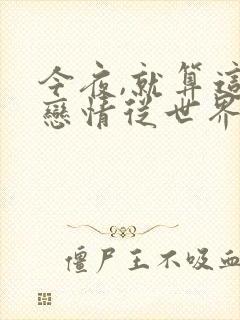 今夜,就算這
戀情從世界
僵尸王不吸血